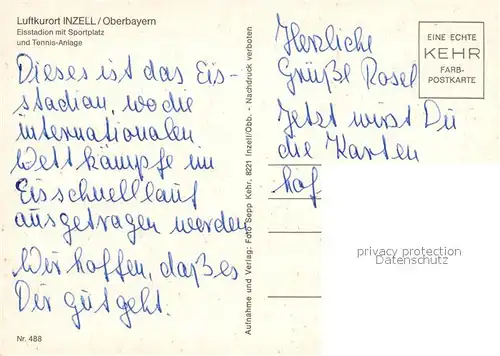 Luftkurort INZELL/Oberbayern
Eisstadion mit Sportplatz
und Tennis-Anlage
Dieses ist das Eis-
stadion, wo die
internationalen
Wettkämpfe im
Eisschnellauf
ausgetragen werden
Wir hoffen, daß es
Dir gutgeht.
Nr. 488
Aufnahme und Verlag: Foto Sepp Kehr, 8221 Inzell/Obb. - Nachdruck verboten
Herzliche
Grüße Rosel
Jetzt wirst Du
die Karten
EINE ECHTE
KEHR
FARB-
POSTKARTE
privacy protection
Datenschutz